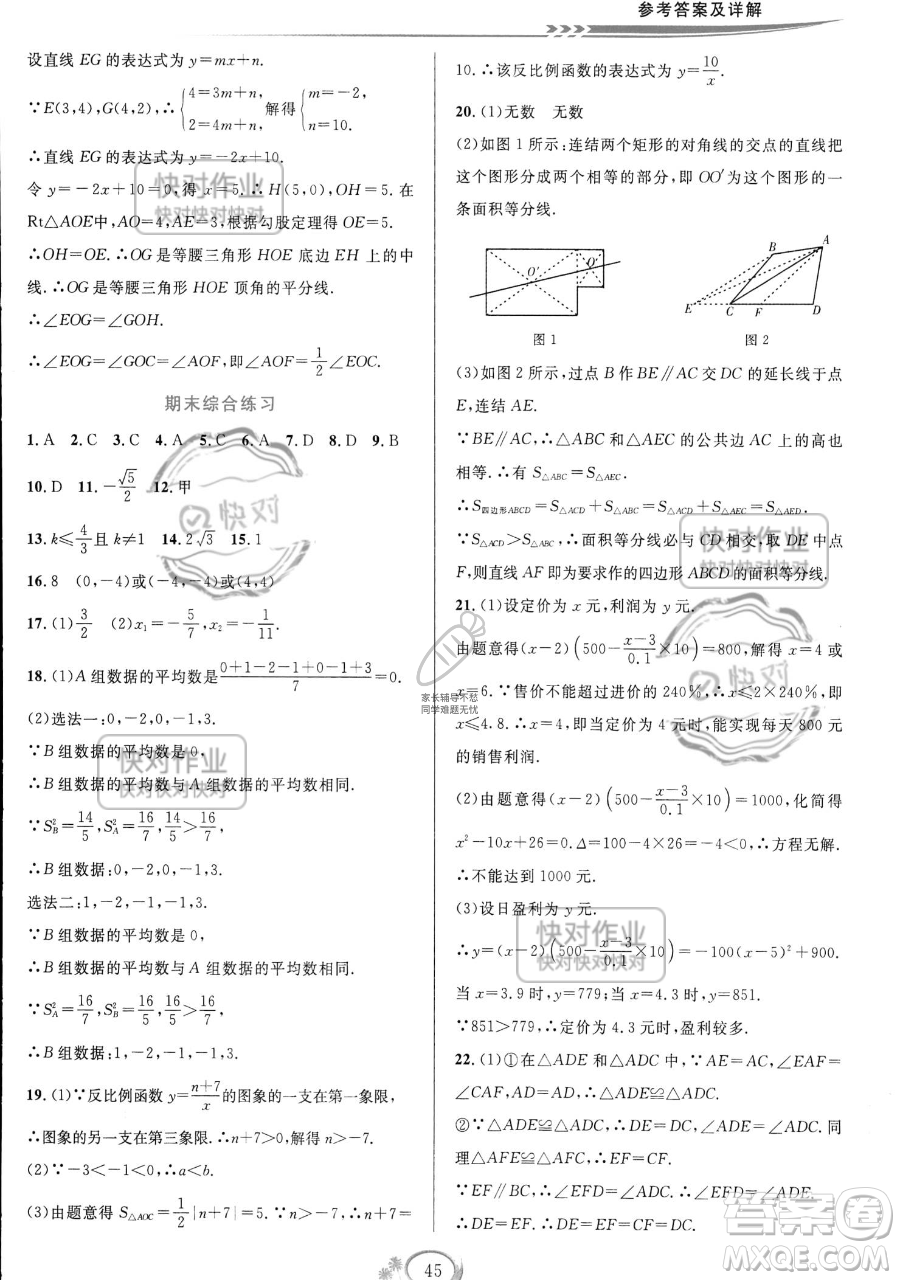 参考答案及详解
设直线 EG 的表达式为 y=mx+n.
∵E(3,4),G(4,2),∴{4=3m+n, 2=4m+n, 解得{m=-2, n=10.
∴直线 EG 的表达式为 y=-2x+10.
令 y=-2x+10=0,得 x=5.∴H(5,0),OH=5.在
Rt△AOE中,AO=4,AE=3,根据勾股定理得 OE=5.
∴OH=OE.∴OG 是等腰三角形 HOE 底边 EH 上的中
线.∴OG 是等腰三角形 HOE 顶角的平分线.
∴∠EOG=∠GOH.
∴∠EOG=∠GOC=∠AOF,即∠AOF=1/2∠EOC.
期末综合练习
1.A 2.C 3.C 4.A 5.C 6.A 7.D 8.D 9.B
10.D 11.-√5/2 12.甲
13.k≤4/3且 k≠1 14.2√3 15.1
16.8 (0,-4)或(4,-4)或(4,4)
17.(1)3/2 (2)x₁=-5/7,x₂=-1/11.
18.(1)A 组数据的平均数是(0+1-2-1+0-1+3)/7=0.
(2)选法一:0,-2,0,-1,3.
∵B 组数据的平均数是 0,
∴B 组数据的平均数与 A 组数据的平均数相同.
∵S²_B=14/5,S²_A=16/7,14/5>16/7,
∴B 组数据:0,-2,0,-1,3.
选法二:1,-2,-1,-1,3.
∵B 组数据的平均数是 0,
∴B 组数据的平均数与 A 组数据的平均数相同.
∵S²_A=16/7,S²_B=16/5,16/5>16/7,
∴B 组数据:1,-2,-1,-1,3.
19.(1)∵反比例函数 y=(n+7)/x的图象的一支在第一象限,
∴图象的另一支在第三象限.∴n+7>0,解得 n>-7.
(2)∵-3<-1<0,∴a<b.
(3)由题意得 S△AOC=1/2|n+7|=5.∵n>-7,∴n+7=
10.∴该反比例函数的表达式为 y=10/x.
20.(1)无数 无数
(2)如图 1 所示:连结两个矩形的对角线的交点的直线把
这个图形分成两个相等的部分,即 OO′为这个图形的一
条面积等分线.
O′ O′
图 1
A B E C F D
图 2
(3)如图 2 所示,过点 B 作 BE∥AC 交 DC 的延长线于点
E,连结 AE.
∵BE∥AC,∴△ABC 和△AEC 的公共边 AC 上的高也
相等.∴有 S△ABC=S△AEC.
∴S四边形ABCD=S△ACD+S△ABC=S△ACD+S△AEC=S△AED.
∵S△ACD>S△ABC,∴面积等分线必与 CD 相交,取 DE 中点
F,则直线 AF 即为要求作的四边形 ABCD的面积等分线.
21.(1)设定价为 x 元,利润为 y 元.
由题意得(x-2)(500-(x-3)/0.1×10)=800,解得 x=4 或
x=6.∵售价不能超过进价的 240%,∴x≤2×240%,即
x≤4.8.∴x=4,即当定价为 4 元时,能实现每天 800 元
的销售利润.
(2)由题意得(x-2)(500-(x-3)/0.1×10)=1000,化简得
x²-10x+26=0.Δ=100-4×26=-4<0,∴方程无解.
∴不能达到 1000 元.
(3)设日盈利为 y 元.
∴y=(x-2)(500-(x-3)/0.1×10)=-100(x-5)²+900.
当 x=3.9 时,y=779;当 x=4.3 时,y=851.
∵851>779,∴定价为 4.3 元时,盈利较多.
22.(1)①在△ADE 和△ADC 中,∵AE=AC,∠EAF=
∠CAF,AD=AD,∴△ADE≌△ADC.
②∵△ADE≌△ADC,∴DE=DC,∠ADE=∠ADC.同
理△AFE≌△AFC,∴EF=CF.
∵EF∥BC,∴∠EFD=∠ADC.∴∠EFD=∠ADE.
∴DE=EF.∴DE=EF=CF=DC.
45
快对作业
快对快对快对
快对
家长辅导不愁
同学难题无忧
快对作业
快对快对快对
快对作业
快对快对快对
快对
快对作业
快对快对快对
答案圈
MXQE.COM